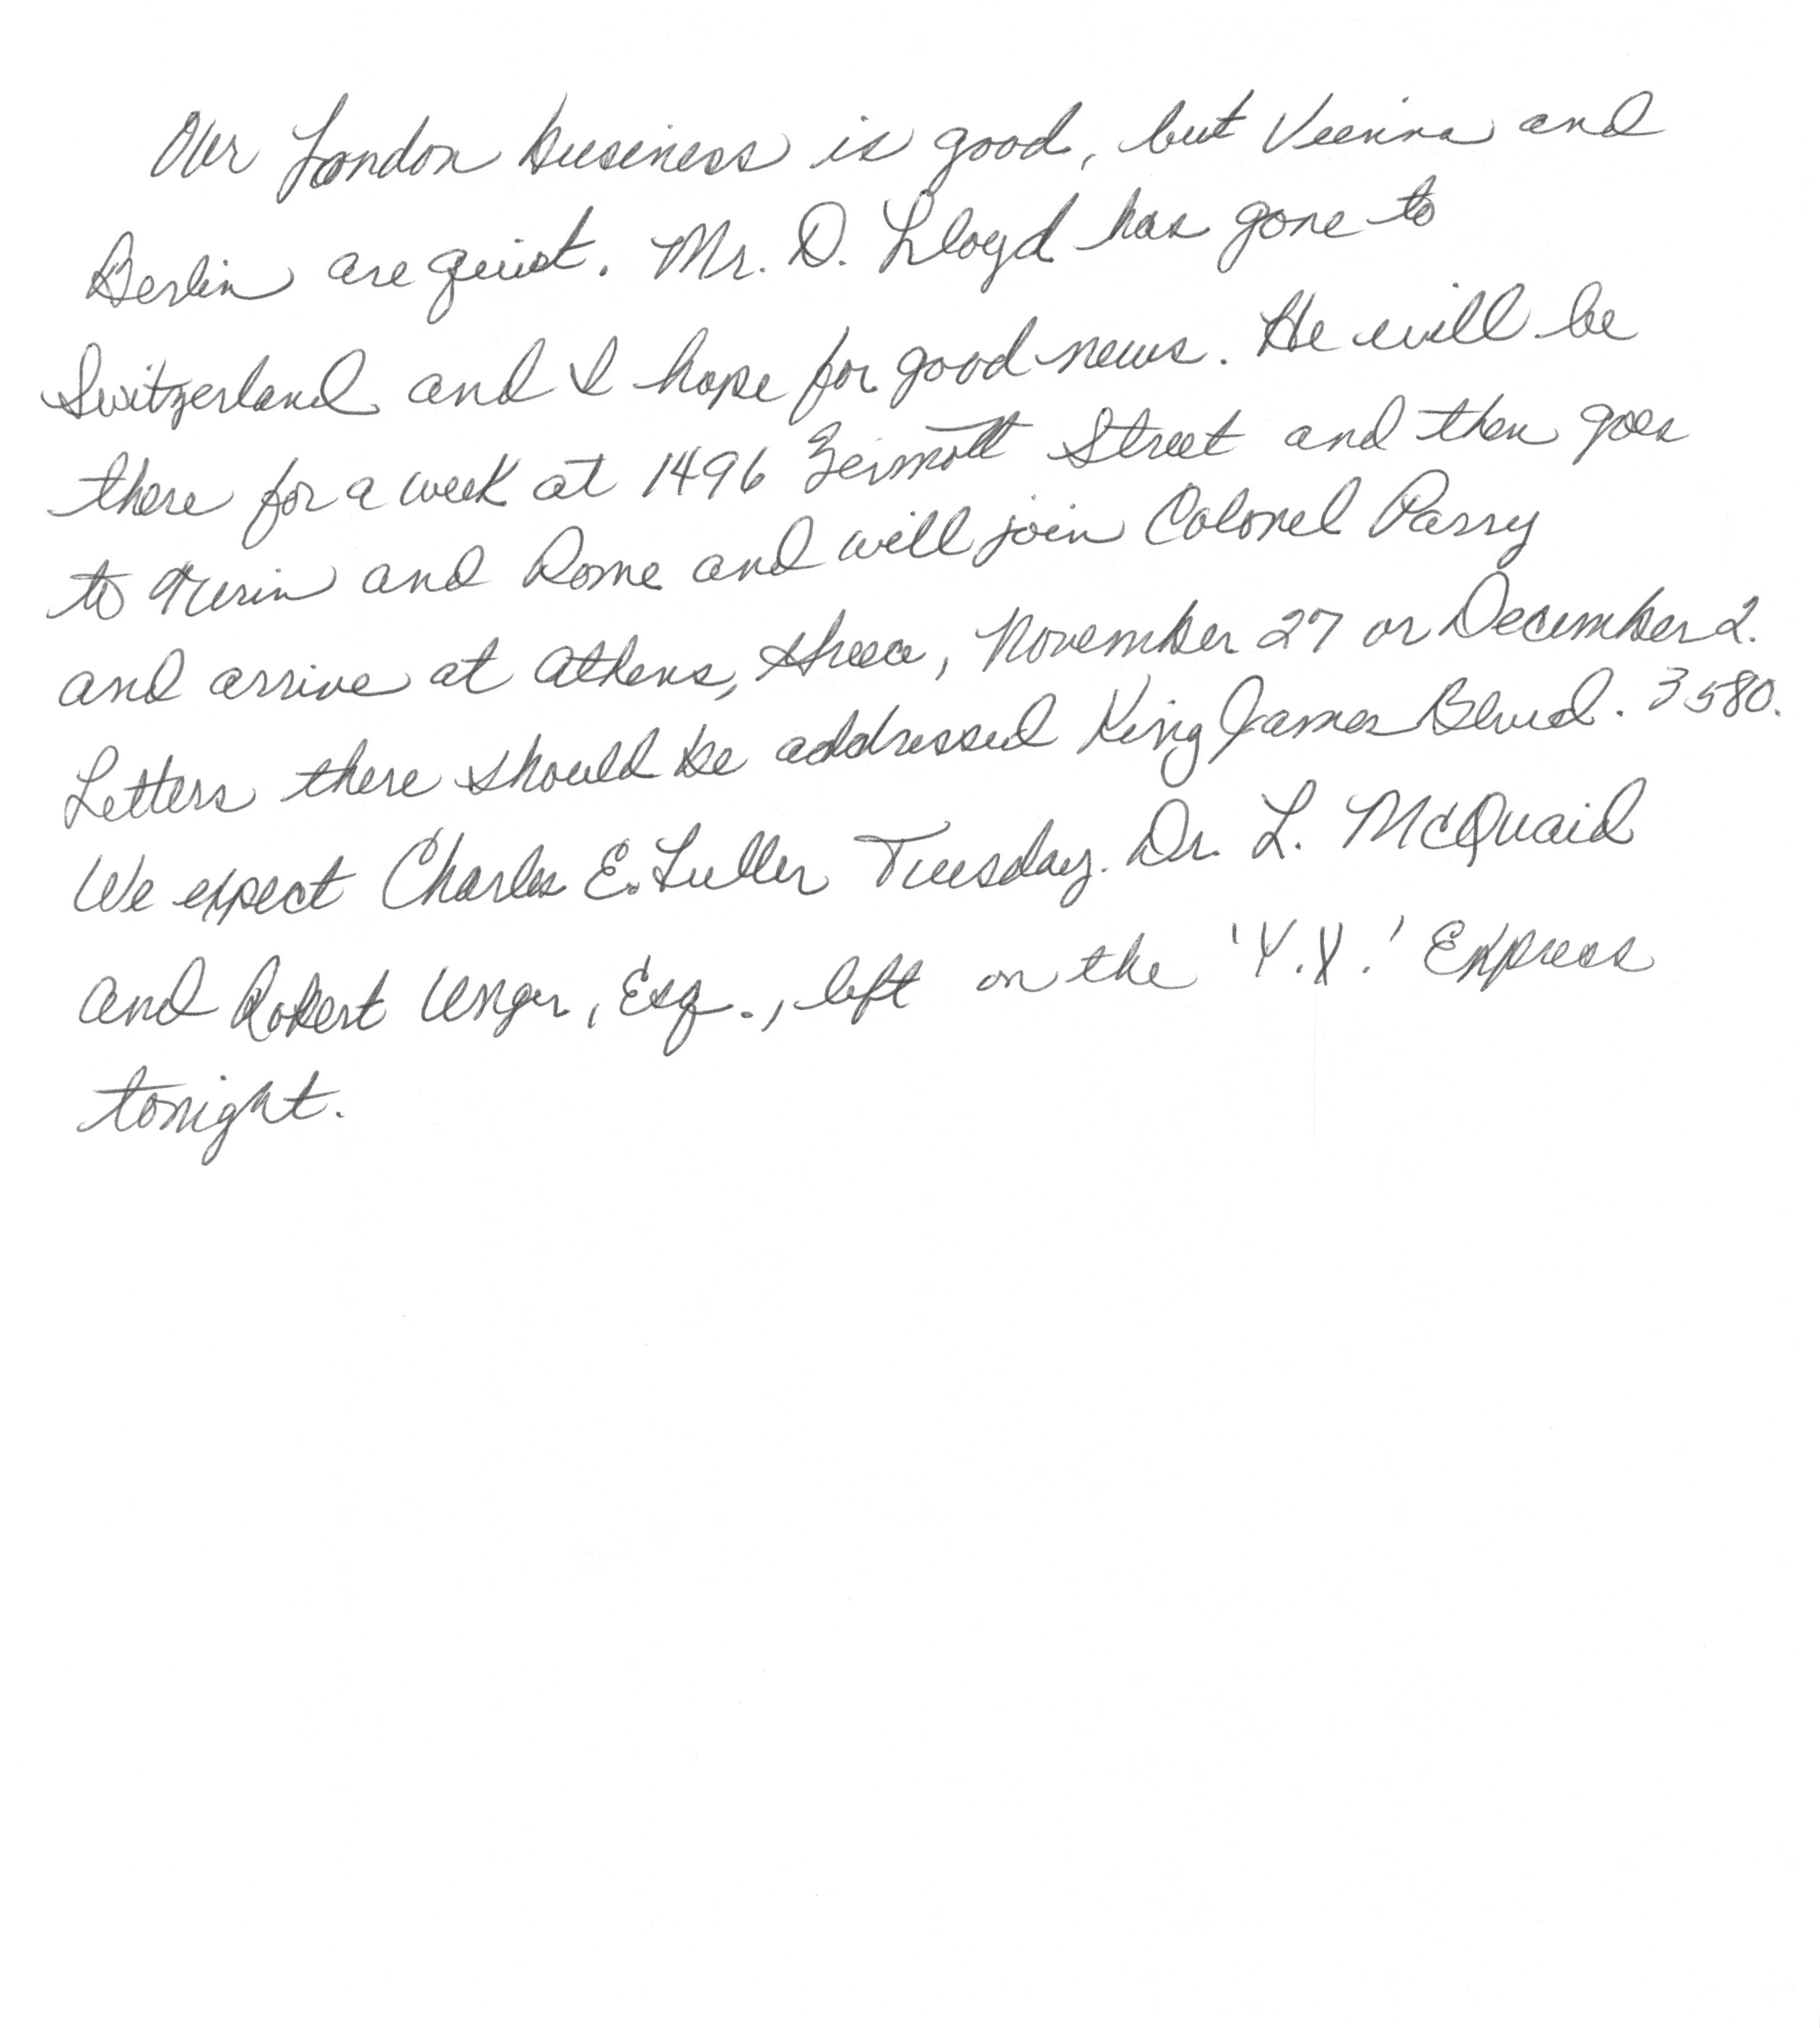 Our London business is good, but Vienna and
Berlin are quiet. Mr. D. Lloyd has gone to
Switzerland and I hope for good news. He will be
there for a week at 1496 Zermott Street and then goes
to Turin and Rome and will join Colonel Parry
and arrive at Athens, Greece, November 27 or December 2.
Letters there should be addressed King James Blvd. 3580.
We expect Charles E. Fuller Tuesday. Dr. L. McQuaid
and Robert Unger, Esq., left on the 'Y.X.' Express
tonight.